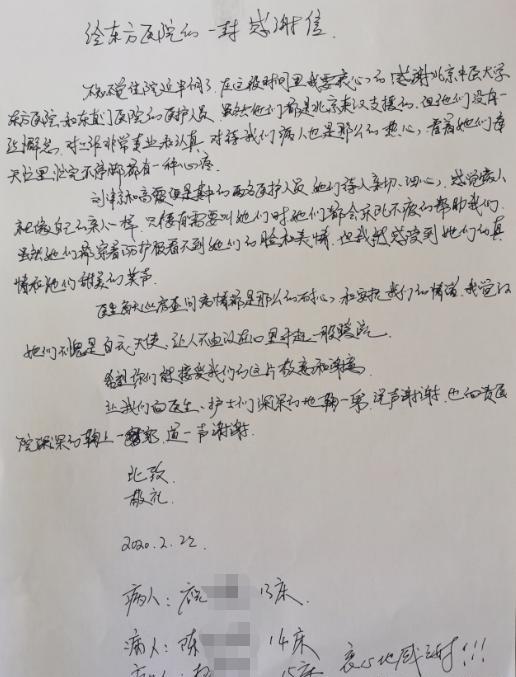 给东方医院的一封感谢信
不知不觉住院近半个月了,在这段时间里我要衷心的感谢北京中医大学
东方医院和东直门医院的医护人员,虽然她们都是北京来汉支援的,但她们没有一
丝懈怠,对工作非常专业和认真,对待我们病人也是那么的热心,看着她们每
天忙里忙完不停脚都有一种心疼.
刘 和高 但是其中的两名医护人员,她们待人亲切、细心,感觉病人
和像自己的亲人一样,只要有需要叫她们时她们都会不耐不疲的帮助我们.
虽然她们都穿着防护服看不到她们的脸和表情,但我能感受到她们的真
情和她们甜美的笑声.
医生每天必房查问病情都是那么的有耐心,和安抚我们的情绪,我觉得
她们不愧是白衣天使,让人不由得在心里升起一股暖流.
希望你们能接受我们的这片敬意和谢意
让我们向医生、护士们深深的地鞠一躬,说声谢谢,也向贵医
院深深的鞠上一躬,道一声谢谢.
此致
敬礼
2020.2.22.
病人: 13床.
病人:陈 14床
15床 衷心地感谢!!!